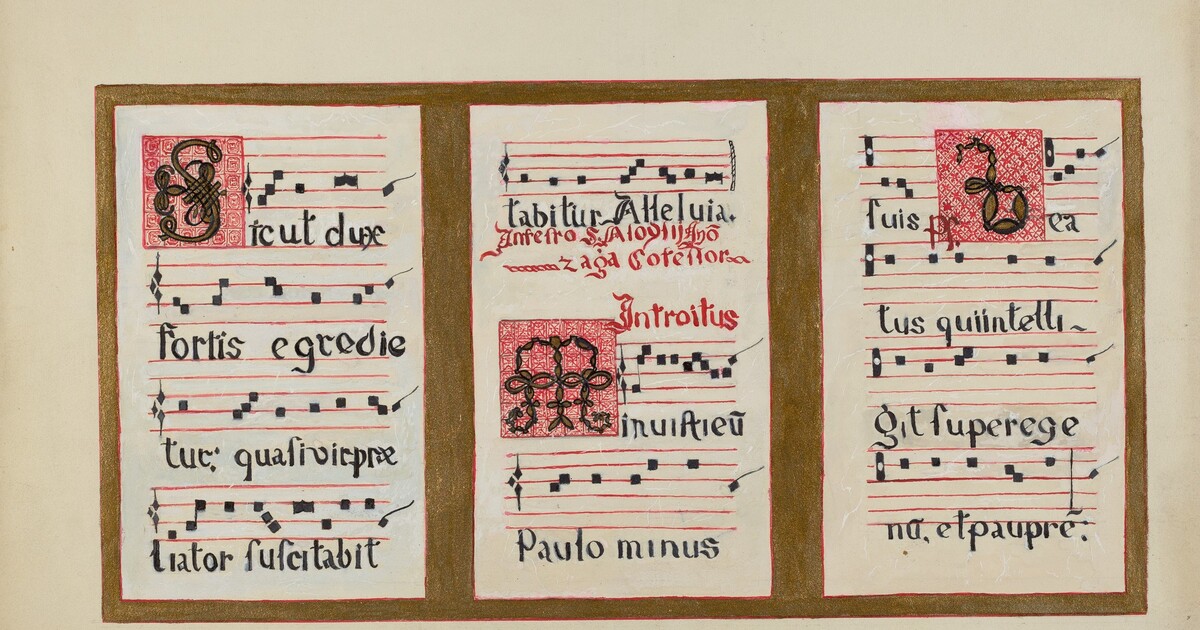 Sicut dux
fortis egredie
tur: quasi vir præ
liator suscitabit
tabitur Alleluia.
Infesto S. Aloysij Gō
zaga Cofessor
Introitus
Minuisti eū
Paulo minus
suis ps. Bea
tus qui intelli~
git super ege
nū, et pauprē: